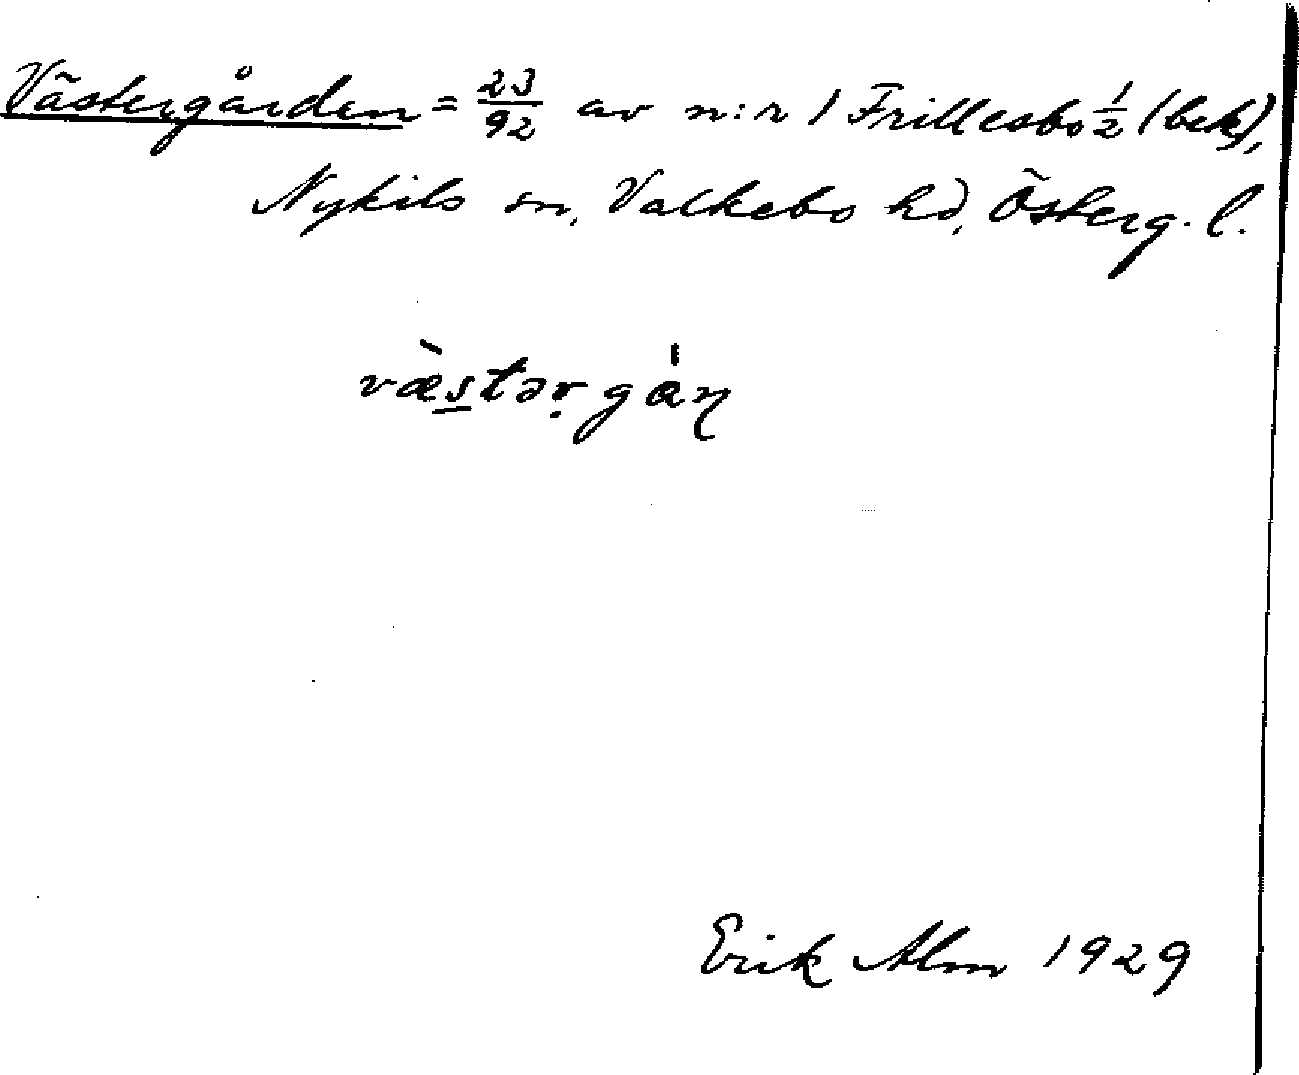 Västergården = 23/92 av n:r 1 Frillesbo 1/2 (bek),
Nykils sn, Valkebo hd, Österg. l.
væ̀stəṛgán
Erik Alm 1929